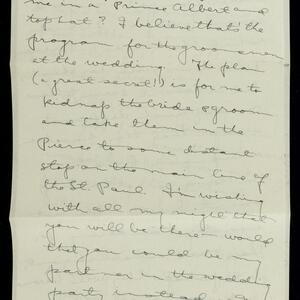 me in a "Prince Albert and
top hat? I believe that's the
program for the groomsmen
at the wedding. The plan
(a great secret!) is for me to
kidnap the bride & groom
and take them in the
Pierce to some distant
stop on the main line of
the St. Paul. I'm wishing
with all my might that
you will be there - would
that you could be my
partner in the wedding
party instead